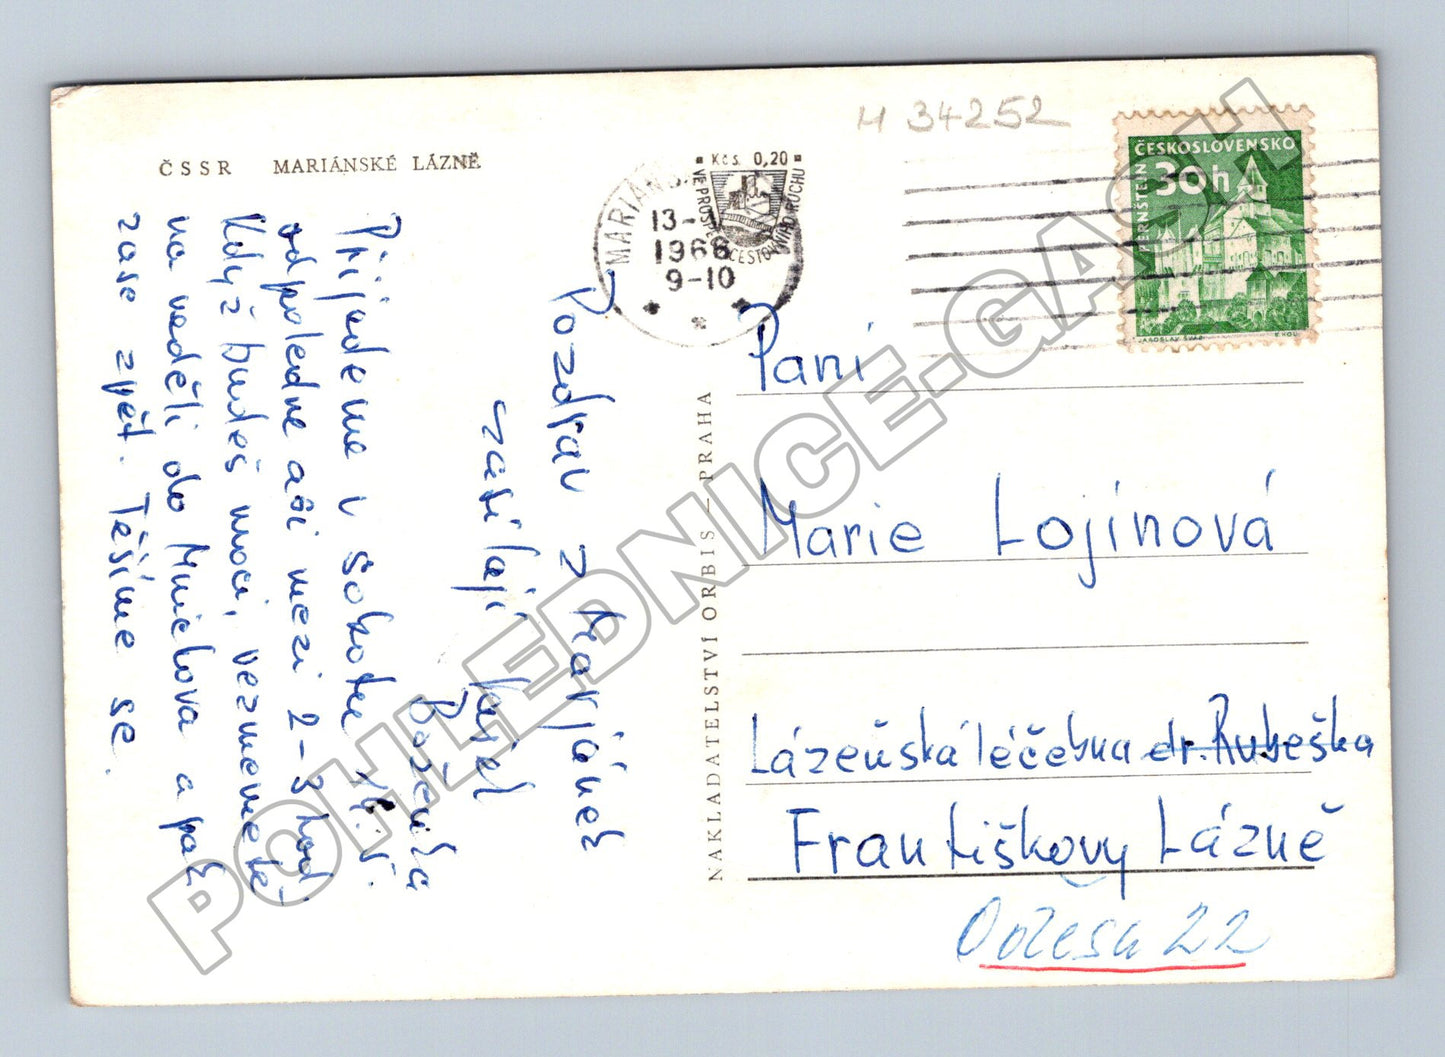 H 34252
ČSSR MARIÁNSKÉ LÁZNĚ
MARIÁNS
13-
1966
9-10
Kčs 0,20
VE PROSPĚ CESTOVNÍHO RUCHU
ČESKOSLOVENSKO
30h
PERNŠTEJN
JAROSLAV ŠVÁB
Pozdrav z Mariánek
zasílají Karel
Boženka
Přijedeme v sobotu 14. 5.
odpoledne asi mezi 2-3 hod.
Když budeš moci, vezmeme tě
na neděli do Mnichova a pak
zase zpět. Těšíme se.
NAKLADATELSTVÍ ORBIS — PRAHA
Paní
Marie Lojínová
Lázeňská léčebna dr. Rubeška
Františkovy Lázně
Oděsa 22
POHLEDNICE-GASH